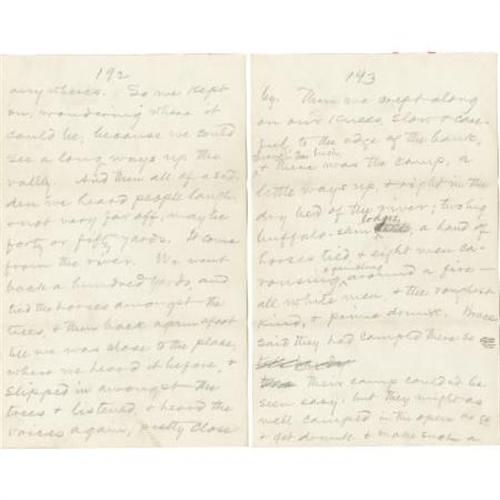 192
anywheres. So we kept
on, wondering where it
could be, because we could
see a long ways up the
valley. And then all of a sud-
den we heard people laugh
not very far off, maybe
forty or fifty yards. It come
from the river. We went
back a hundred yards, and
tied the horses amongst the
trees, & then back again afoot
till we was close to the place,
where we heard it before, &
slipped in amongst the
trees & listened, & heard the
voices again, pretty close
193
by. Then we crept along
on our knees, slow & care-
ful, to the edge of the bank,
through the bushes
& there was the camp, a
little ways up, & right in the
dry bed of the river; two big
lodges
buffalo-skin, a band of
horses tied, & eight men ca-
& gambling
rousing around a fire—
all white men, & the roughest
kind, & prime drunk. Brace
said they had camped there so
their camp couldn't be
seen easy, but they might as
well camped in the open as
& get drunk & make such a